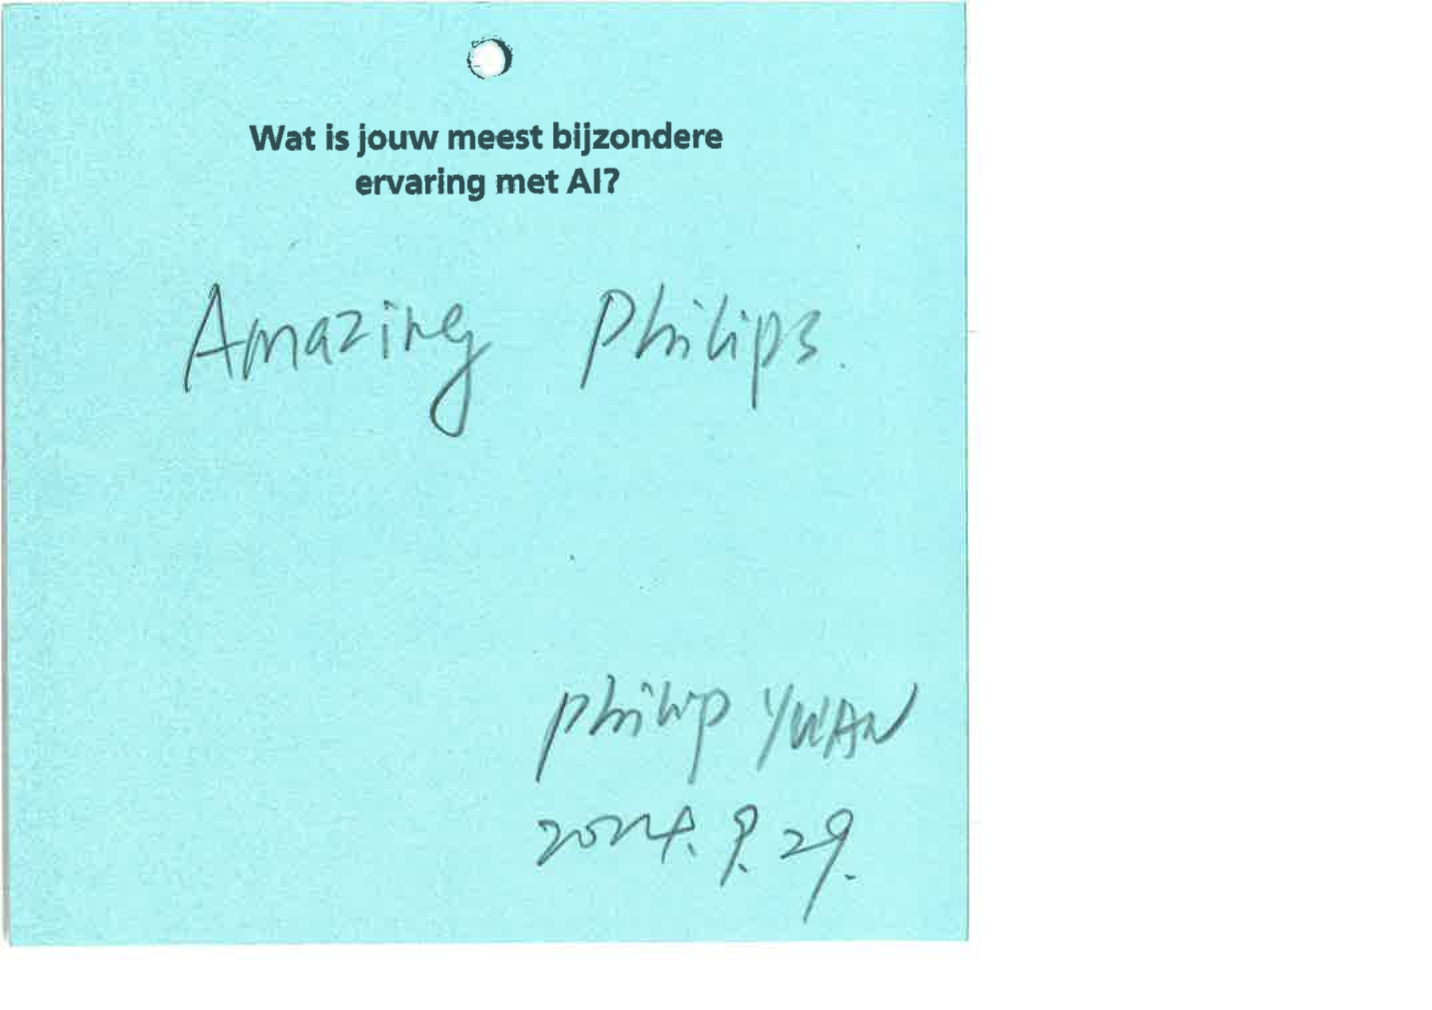 Wat is jouw meest bijzondere
ervaring met AI?
Amazing Philips.
philip YUAN
2024.9.29.